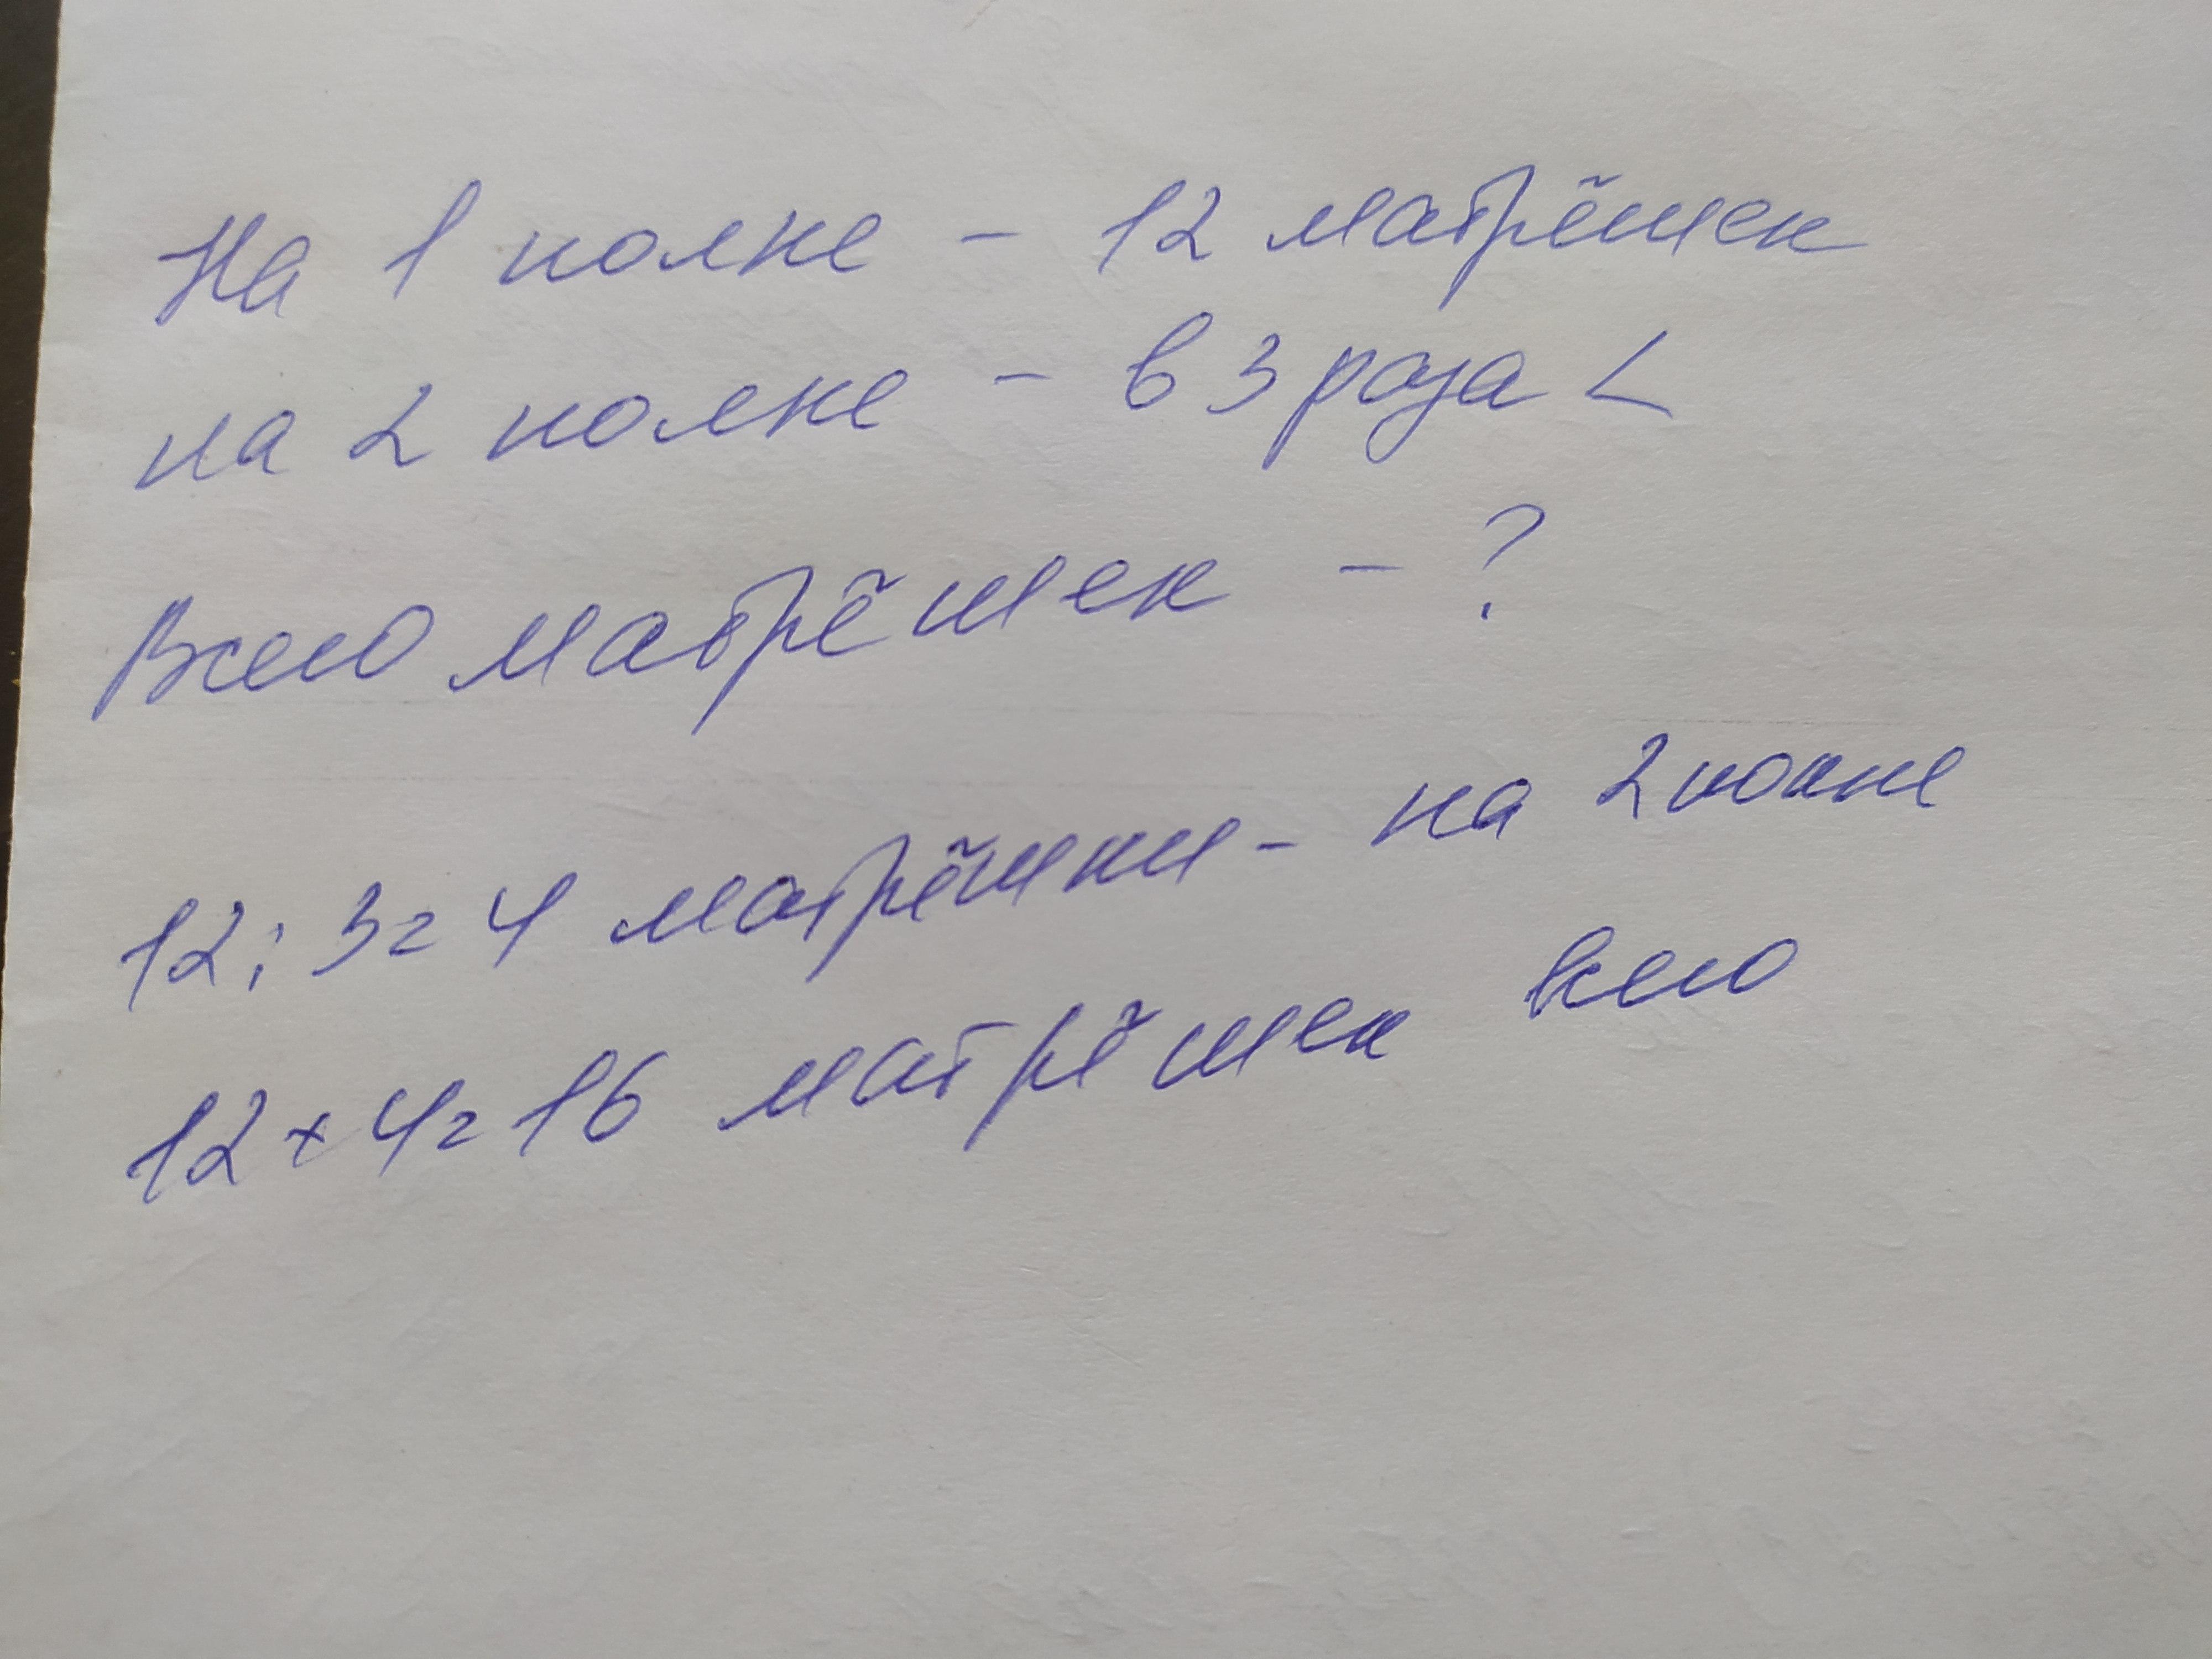 На 1 полке - 12 матрёшек
на 2 полке - в 3 раза <
Всего матрёшек - ?
12 : 3 = 4 матрёшки - на 2 полке
12 + 4 = 16 матрёшек всего